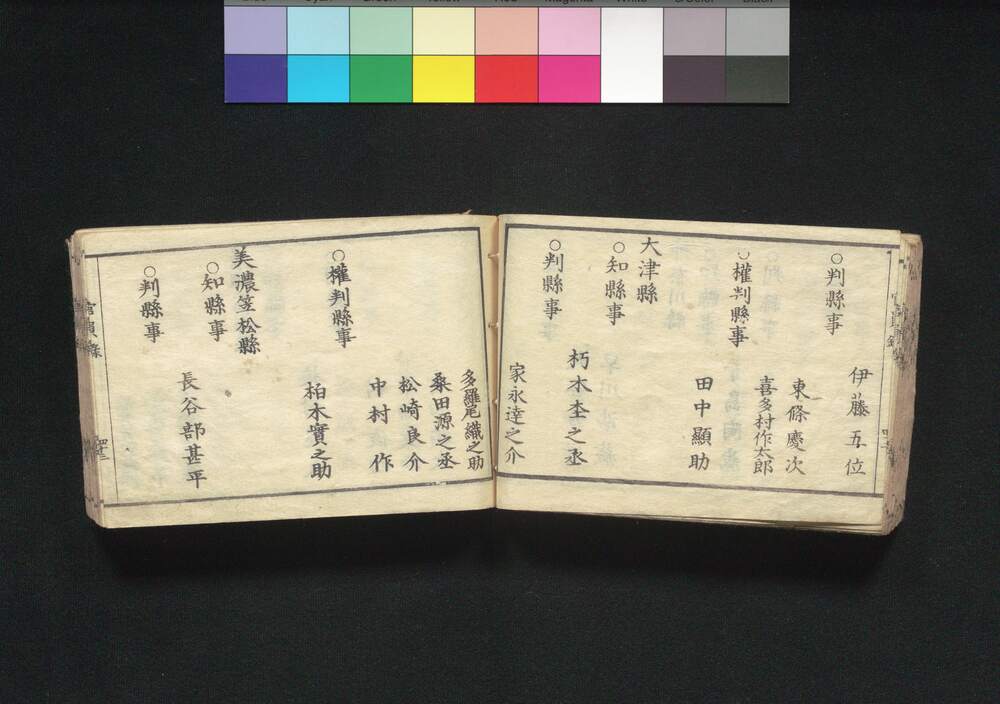 伊藤五位
○判縣事
東條慶次
喜多村作太郎
○權判縣事
田中顯助
大津縣
○知縣事
朽木杢之丞
○判縣事
家永達之介
多羅尾織之助
桑田源之丞
松崎良介
中村作
○權判縣事
柏木實之助
美濃笠松縣
○知縣事
長谷部甚平
○判縣事
官員録